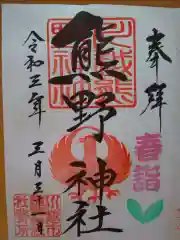 奉拝
春詣
熊野神社
令和三年
三月三十一日